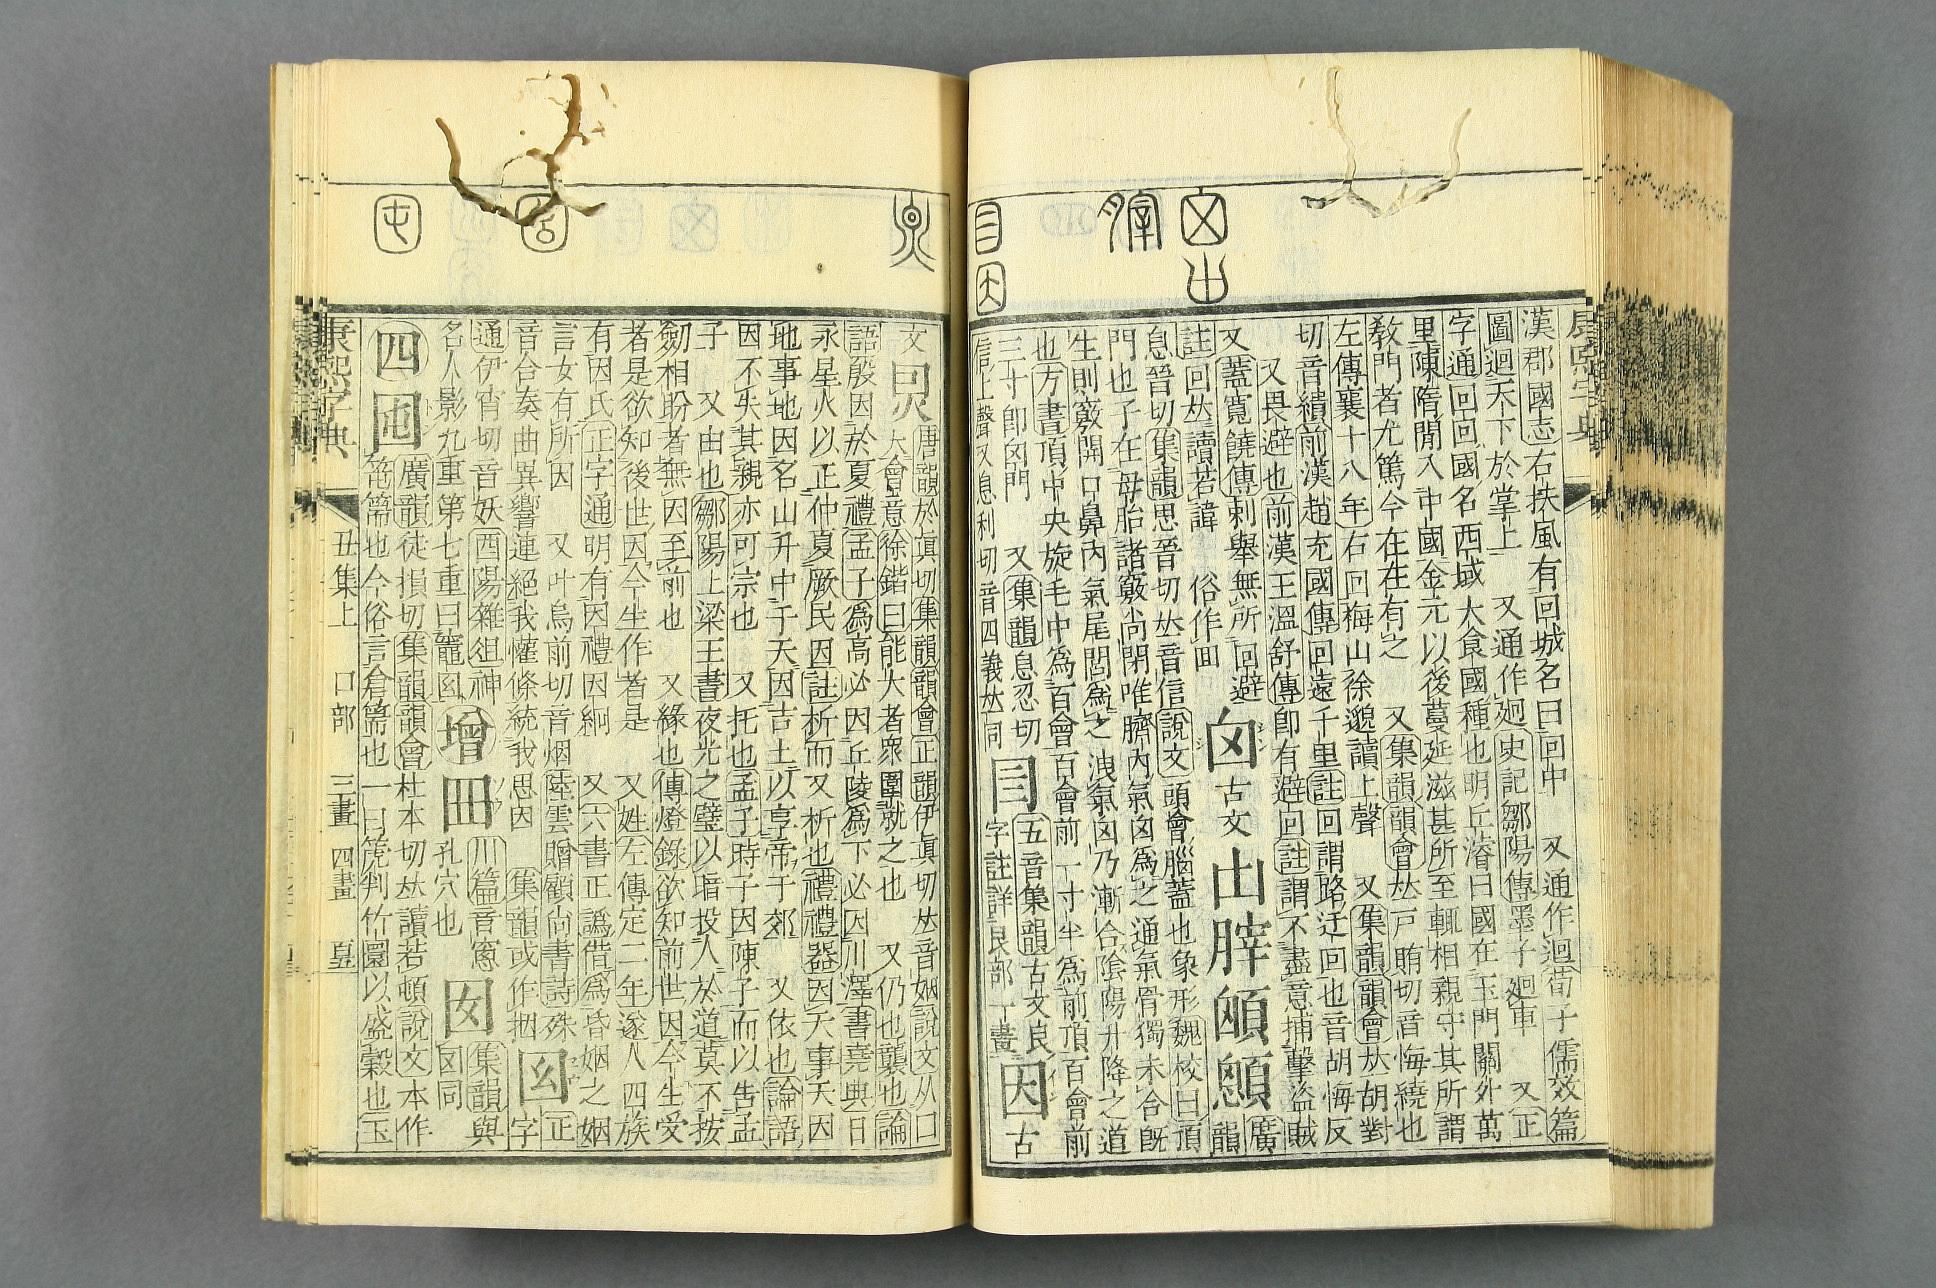 漢郡國志右扶風有回城名曰回中 又通作迴荀子儒效篇
圖迴天下於掌上 又通作廻史記鄒陽傳墨子廻車 又正
字通回回國名西域大食國種也明丘濬曰國在玉門關外萬
里陳隋閒入中國金元以後蔓延滋甚所至輒相親守其所謂
敎門者尤篤今在在有之 又集韻韻會𠀤戸賄切音悔繞也
左傳襄十八年右回梅山徐邈讀上聲 又集韻韻會𠀤胡對
切音繢前漢趙充國傳回遠千里註回謂路迂回也音胡悔反
又畏避也前漢王溫舒傳卽有避回註謂不盡意捕擊盜賊
又蓋寬饒傳刺舉無所回避
註回𠀤讀若諱 俗作囬
囟古文脺顖廣韻
息晉切集韻思晉切𠀤音信說文頭會腦蓋也象形魏校曰頂
門也子在母胎諸竅尚閉唯臍內氣囟爲之通氣骨獨未合旣
生則竅開口鼻內氣尾閭爲之洩氣囟乃漸合陰陽升降之道
也方書頂中央旋毛中爲百會百會前一寸半爲前頂百會前
三寸卽囟門 又集韻息忍切
信上聲又息利切音四義𠀤同
五音集韻古文㫐
字註詳艮部一畫
因古
文
唐韻於眞切集韻韻會正韻伊眞切𠀤音姻說文从口
大會意徐鍇曰能大者衆圍就之也 又仍也襲也論
語殷因於夏禮孟子爲高必因丘陵爲下必因川澤書堯典日
永星火以正仲夏厥民因註析而又析也禮禮器因天事天因
地事地因名山升中于天因吉土以享帝于郊 又依也論語
因不失其親亦可宗也 又托也孟子時子因陳子而以告孟
子 又由也鄒陽上梁王書夜光之璧以暗投人於道莫不按
劒相盼者無因至前也 又緣也傳燈錄欲知前世因今生受
者是欲知後世因今生作者是 又姓左傳定二年遂人四族
有因氏正字通明有因禮因絅 又六書正譌借爲昏姻之姻
言女有所因 又叶烏前切音烟陸雲贈顧尚書詩殊
音合奏曲異響連絕我懽條統我思因 集韻或作捆
正字
通伊宵切音妖酉陽雜俎神
名人影九重第七重曰
增
川篇音窻
孔穴也
囡
集韻與
囝同
四
囤
廣韻徒損切集韻韻會杜本切𠀤讀若頓說文本作
篅也今俗言倉篅也一曰篼判竹圜以盛穀也玉
康熙字典 丑集上 口部 三畫 四畫